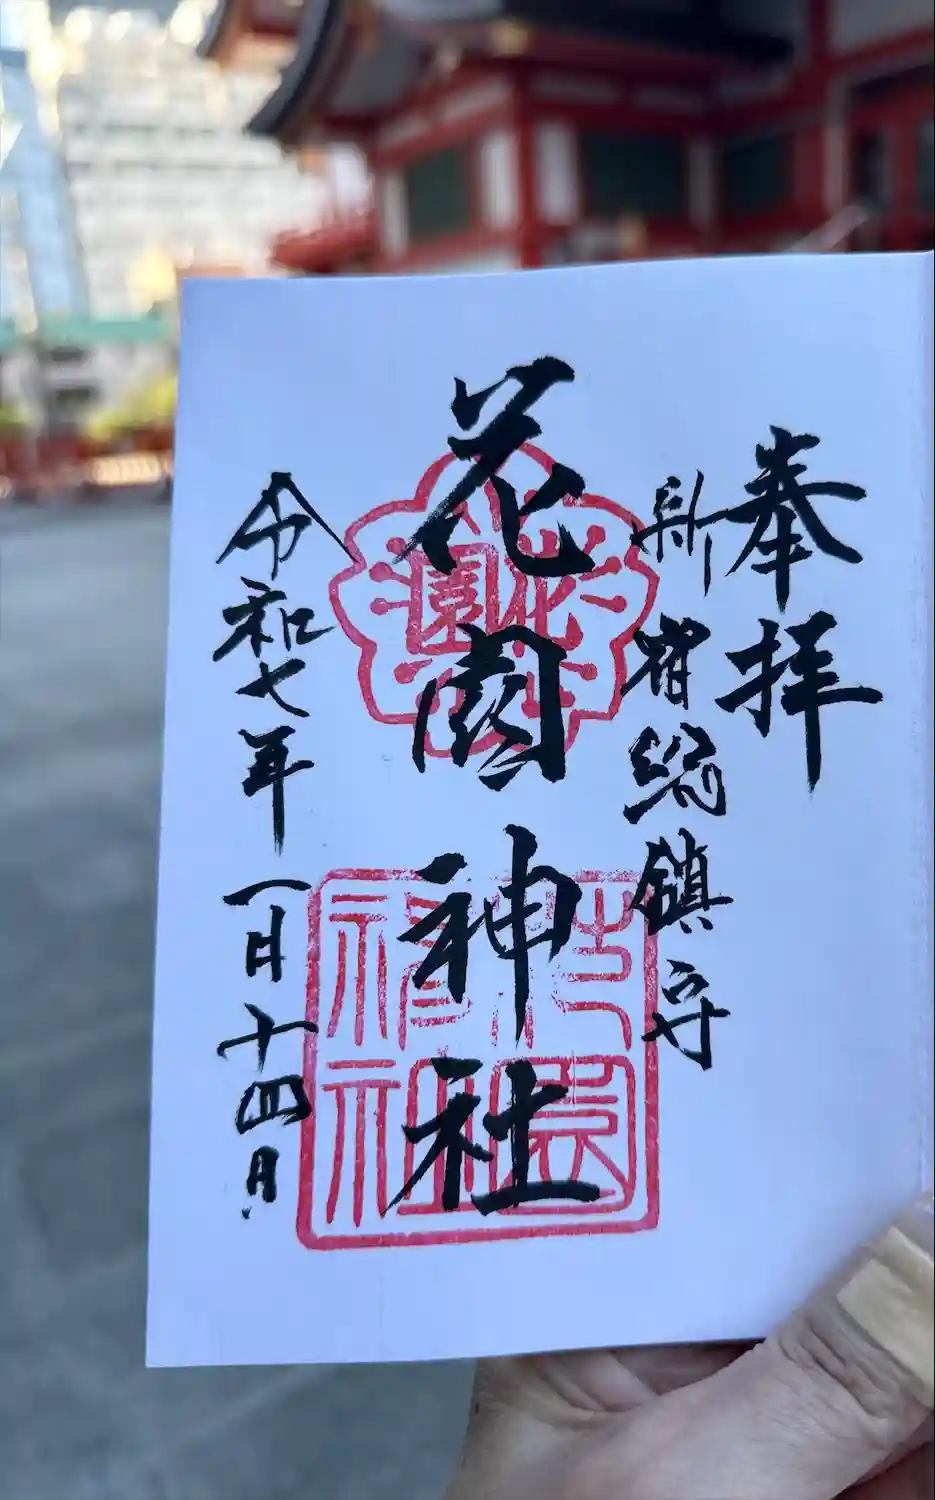 奉拝
新宿総鎮守
花園神社
令和七年一月十四日
花園
花園
神社